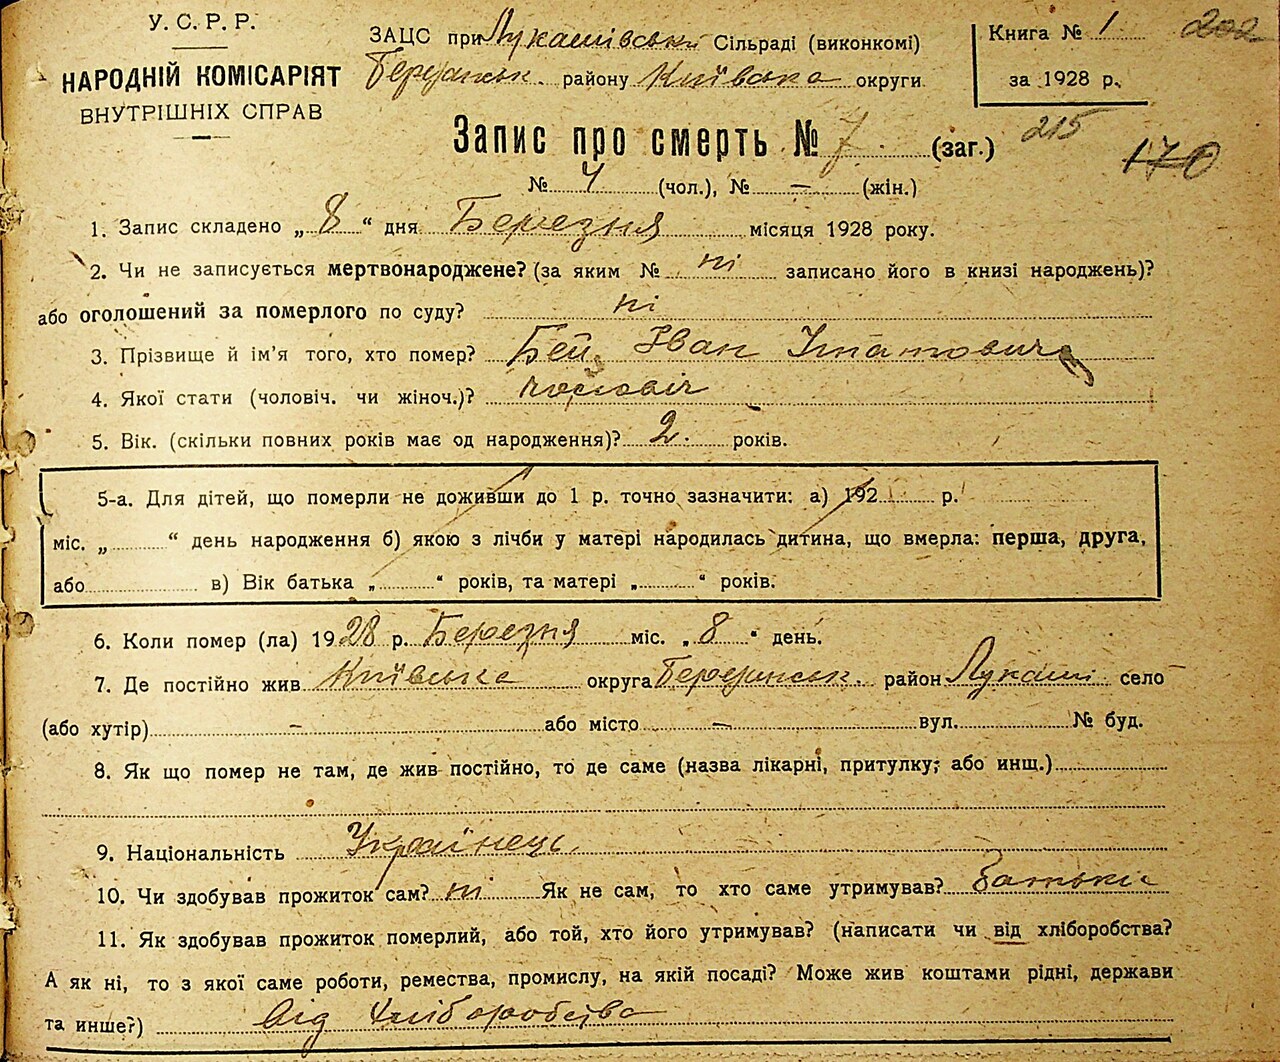 У. С. Р. Р.
НАРОДНІЙ КОМІСАРІЯТ
ВНУТРІШНІХ СПРАВ
ЗАЦС при Лукашівській Сільраді (виконкомі)
Березанськ. району Київська округи
Книга № 1
за 1928 р.
202
Запис про смерть № 7. (заг.)
215
170
№ 4 (чол.), № — (жін.)
1. Запис складено „ 8 “ дня Березня місяця 1928 року.
2. Чи не записується мертвонароджене? (за яким № ні записано його в книзі народжень)?
або оголошений за померлого по суду? ні
3. Прізвище й ім'я того, хто помер? Бей Іван
4. Якої стати (чоловіч. чи жіноч.)? чоловіч
5. Вік. (скільки повних років має од народження)? 2. років.
5-а. Для дітей, що померли не доживши до 1 р. точно зазначити: а) 192 р.
міс. „ “ день народження б) якою з лічби у матері народилась дитина, що вмерла: перша, друга,
або в) Вік батька „ “ років, та матері „ “ років.
6. Коли помер (ла) 1928 р. Березня міс. „ 8 “ день.
7. Де постійно жив Київська округа Березанськ. район Лукаші село
(або хутір) – або місто – вул. № буд.
8. Як що помер не там, де жив постійно, то де саме (назва лікарні, притулку, або инш.)
9. Національність Українець.
10. Чи здобував прожиток сам? ні Як не сам, то хто саме утримував? Батьки
11. Як здобував прожиток померлий, або той, хто його утримував? (написати чи від хліборобства?
А як ні, то з якої саме роботи, ремества, промислу, на якій посаді? Може жив коштами рідні, держави
та инше?) Від хліборобства